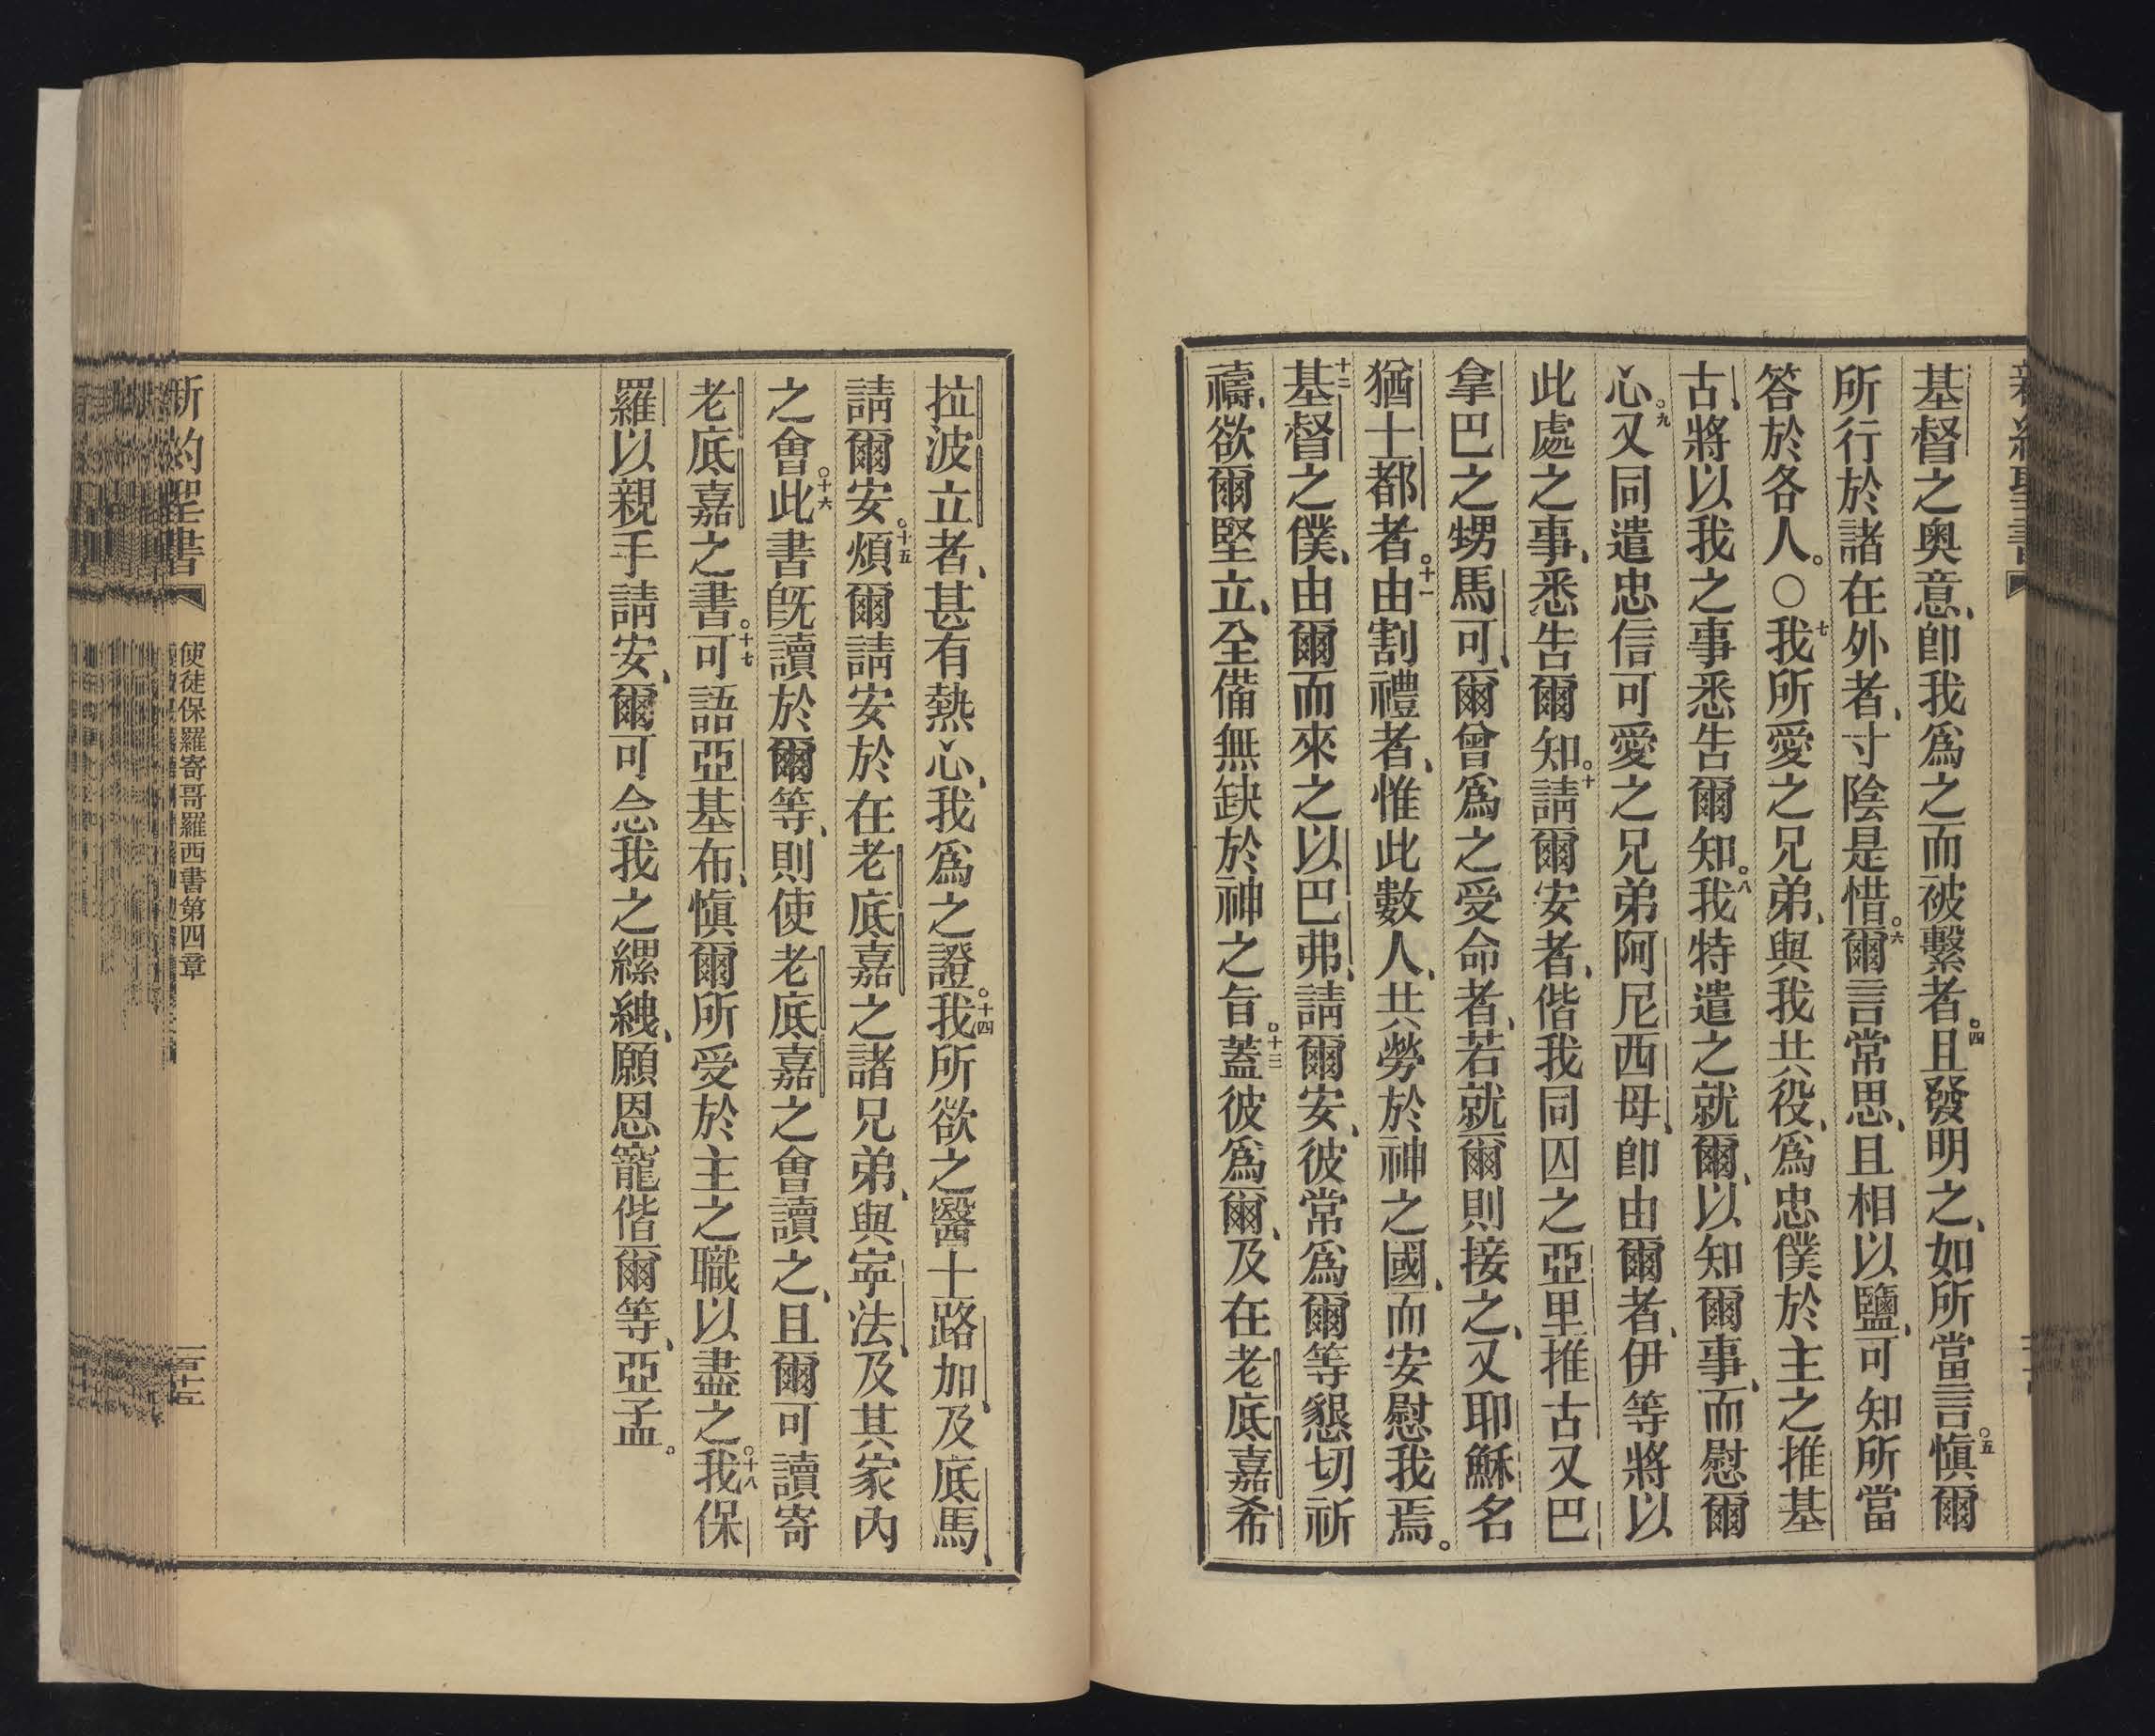 基督之奧意、卽我爲之而被繫者。四且發明之、如所當言。五愼爾
所行於諸在外者、寸陰是惜。六爾言常思、且相以鹽、可知所當
答於各人。○七我所愛之兄弟、與我共役、爲忠僕於主之推基
古、將以我之事悉吿爾知。八我特遣之就爾、以知爾事、而慰爾
心。九又同遣忠信可愛之兄弟阿尼西母、卽由爾者、伊等將以
此處之事、悉吿爾知。十請爾安者、偕我同囚之亞里推古又巴
拿巴之甥馬可、爾曾爲之受命者、若就爾則接之、又耶穌名
猶士都者。十一由割禮者、惟此數人、共勞於神之國、而安慰我焉。
十二基督之僕、由爾而來之以巴弗、請爾安、彼常爲爾等懇切祈
禱、欲爾堅立、全備無缺於神之旨。十三蓋彼爲爾、及在老底嘉希
拉波立者、甚有熱心、我爲之證。十四我所欲之醫士路加、及底馬、
請爾安。十五煩爾請安於在老底嘉之諸兄弟、與寜法、及其家內
之會。十六此書旣讀於爾等、則使老底嘉之會讀之、且爾可讀寄
老底嘉之書。十七可語亞基布、愼爾所受於主之職以盡之。十八我保
羅以親手請安、爾可念我之縲絏、願恩寵偕爾等、亞孟。
新約聖書
使徒保羅寄哥羅西書第四章